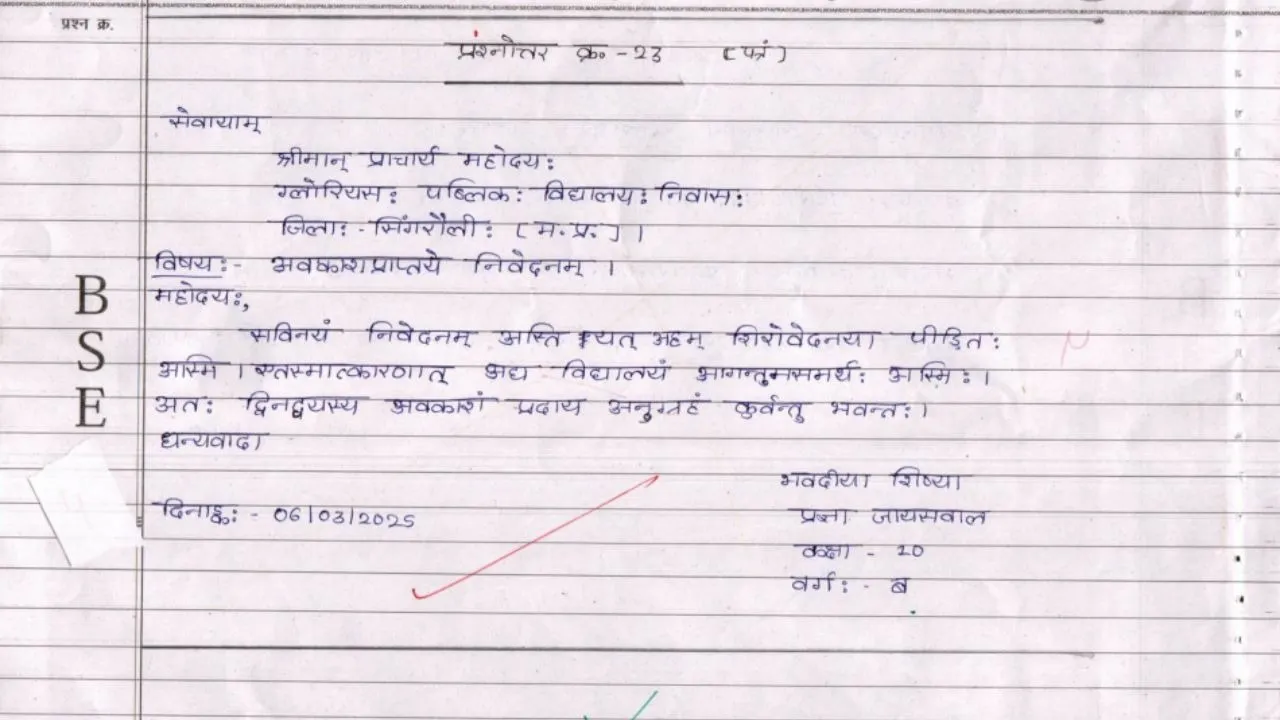 प्रश्न क्र.
प्रश्नोत्तर क्र० - 23 [पत्रं]
सेवायाम्
श्रीमान् प्राचार्य महोदय:
ग्लोरियस: पब्लिक: विद्यालय: निवास:
जिला: - सिंगरौली: [म.प्र.]।
विषय:- अवकाशप्राप्तये निवेदनम्।
महोदय:,
सविनयं निवेदनम् अस्ति यत् अहम् शिरोवेदनया पीड़ित:
अस्मि। एतस्मात्कारणात् अद्य विद्यालयं आगन्तुमसमर्थ: अस्मि:।
अत: दिनद्वयस्य अवकाशं प्रदाय अनुग्रहं कुर्वन्तु भवन्त:।
धन्यवाद।
भवदीया शिष्या
दिनाङ्क: - 06/03/2025
प्रज्ञा जायसवाल
कक्षा - 10
वर्ग: - ब
B
S
E